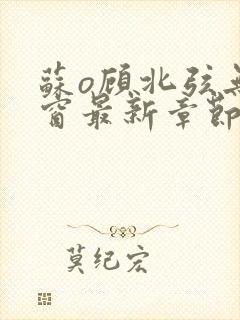 蘇o顾北弦無
窗最新章節
莫纪宏